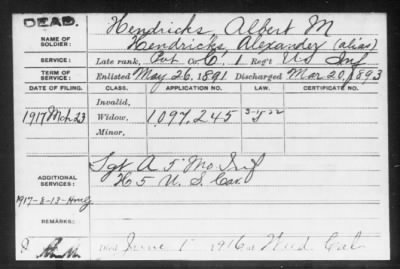 DEAD.
Hendricks, Albert M
NAME OF SOLDIER:
Hendricks, Alexander (alias)
SERVICE:
Late rank, Pvt. Co. C, 1 Reg't US Inf
TERM OF SERVICE:
Enlisted May 26, 1891 Discharged Mar 20, 1893
DATE OF FILING. CLASS. APPLICATION NO. LAW. CERTIFICATE NO.
Invalid,
1917 Mch 23 Widow, 1097,245
Minor,
ADDITIONAL SERVICES:
Sgt A 5" Mo Inf
H 5 U. S. Cav.
REMARKS:
June 1 1916 at
Cal